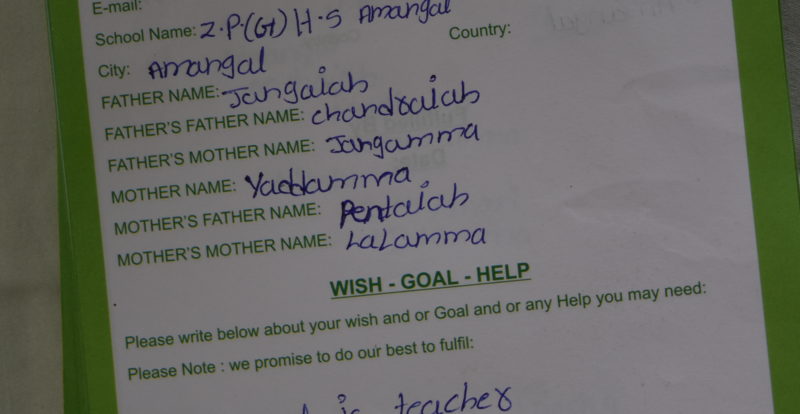 E-mail:
School Name: Z.P.(G) H.S Amangal
City: Amangal Country:
FATHER NAME: Jangaiah
FATHER'S FATHER NAME: chandraiah
FATHER'S MOTHER NAME: Jangamma
MOTHER NAME: Yaddamma
MOTHER'S FATHER NAME: Pentaiah
MOTHER'S MOTHER NAME: Lalamma
WISH - GOAL - HELP
Please write below about your wish and or Goal and or any Help you may need:
Please Note : we promise to do our best to fulfil:
is teacher